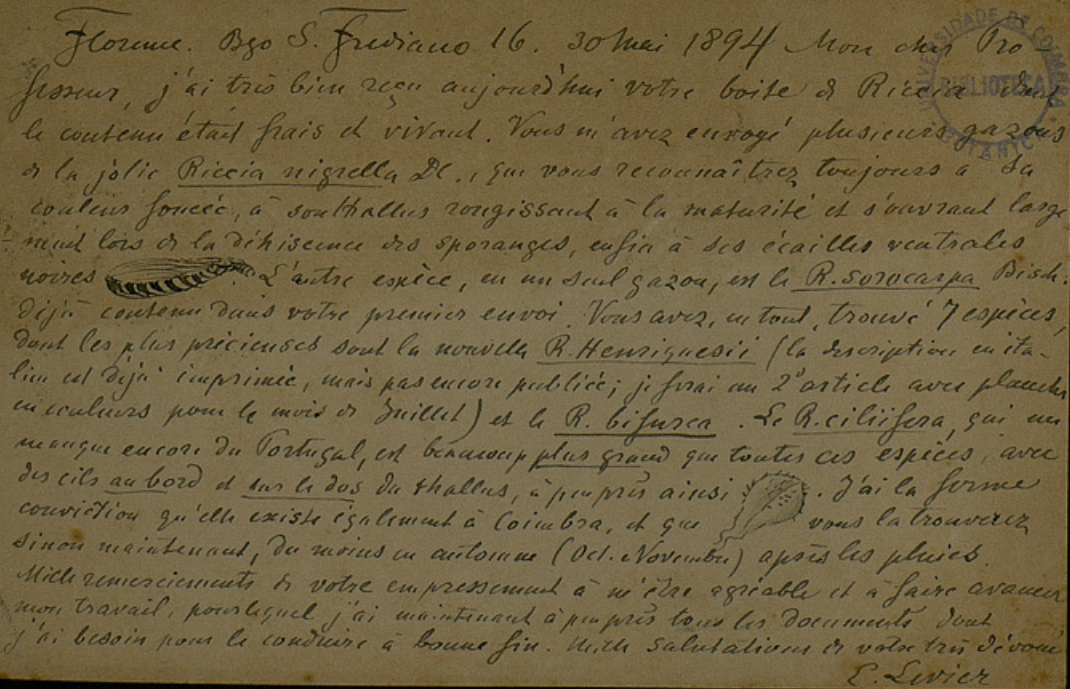 Florence. Bgo S. Frediano 16. 30 Mai 1894 Mon cher Pro-
fesseur, j'ai très bien reçu aujourd'hui votre boite de Riccia dont
le contenu était frais et vivant. Vous m'avez envoyé plusieurs gazons
de la jolie Riccia nigrella DC., que vous reconnaîtrez toujours a sa
couleur foncée, à son thallus rougissant à la maturité et s'ouvrant large-
ment lors de la déhiscence des sporanges, enfin à ses écailles ventrales
noires. L'autre espèce, en un seul gazon, est le R. sorocarpa Bisch.
déjà contenu dans votre premier envoi. Vous avez, en tout, trouvé 7 espèces,
dont les plus précieuses sont la nouvelle R. Henriquesii (la description en ita-
lien est déjà imprimée, mais pas encore publiée; je ferai un 2e article avec planches
en couleurs pour le mois de Juillet) et le R. bifurca. Le R. ciliifera, qui me
manque encore du Portugal, est beaucoup plus grand que toutes ces espèces, avec
des cils au bord et sur le dos du thallus, à peu près ainsi. J'ai la ferme
conviction qu'elle existe également à Coimbra, et que vous la trouverez
sinon maintenant, du moins en automne (Oct. Novembre) après les pluies.
Mille remerciements de votre empressement à m'être agréable et à faire avancer
mon travail, pour lequel j'ai maintenant à peu près tous les documents dont
j'ai besoin pour le conduire à bonne fin. Mille salutations de votre très dévoué
E. Levier
UNIVERSIDADE DE COIMBRA
BIBLIOTECA
BOTANICA